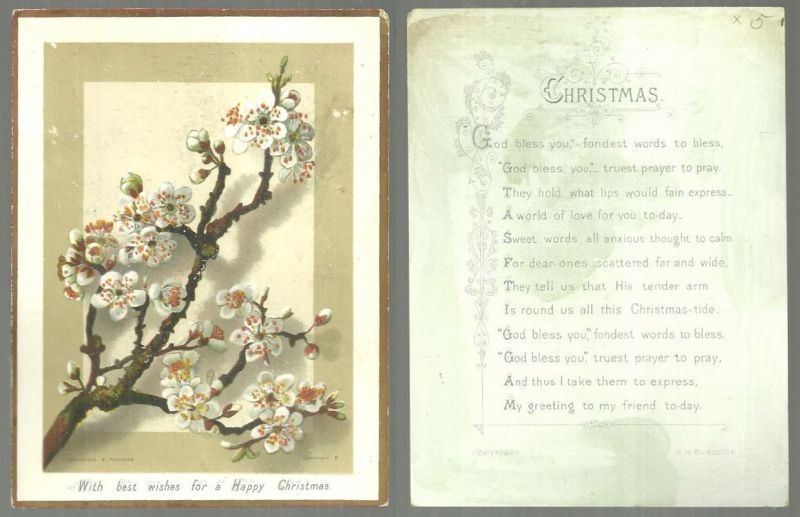 With best wishes for a Happy Christmas
× 5
CHRISTMAS.
God bless you,"- fondest words to bless,
"God bless you,"- truest prayer to pray.
They hold what lips would fain express-
A world of love for you to-day.
Sweet words all anxious thought to calm
For dear ones scattered far and wide,
They tell us that His tender arm
Is round us all this Christmas-tide.
"God bless you," fondest words to bless.
"God bless you," truest prayer to pray,
And thus I take them to express,
My greeting to my friend to-day.
COPYRIGHT